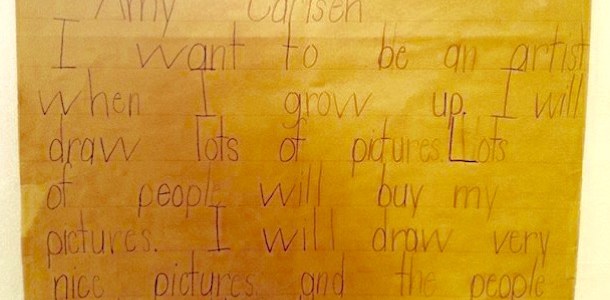 Amy Carlsen
I want to be an artist
when I grow up. I will
draw lots of pictures. Lots
of people will buy my
pictures. I will draw very
nice pictures and the people